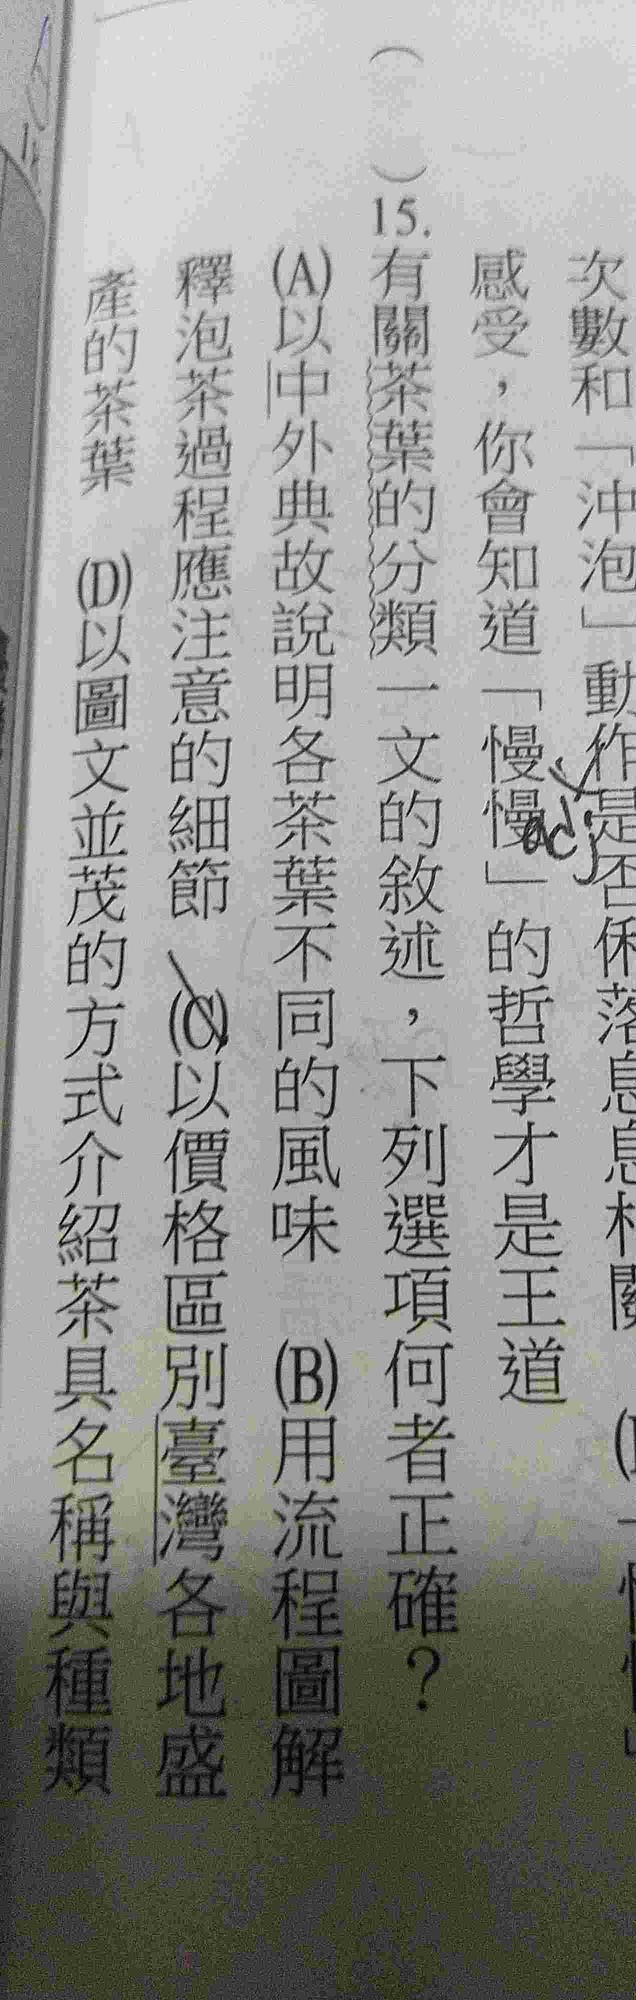 次數和「沖泡」動作是否俐落息息相關
感受，你會知道「慢慢」的哲學才是王道
adj
（　）15.有關茶葉的分類一文的敘述，下列選項何者正確？
(A)以中外典故說明各茶葉不同的風味　(B)用流程圖解
釋泡茶過程應注意的細節　(C)以價格區別臺灣各地盛
產的茶葉　(D)以圖文並茂的方式介紹茶具名稱與種類